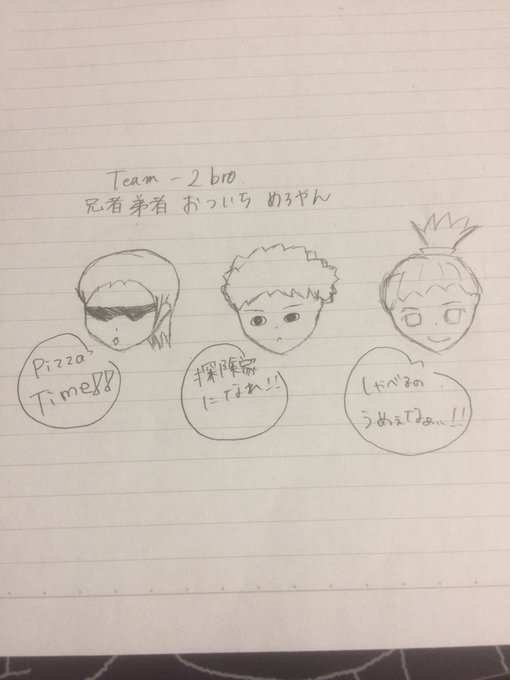 Team - 2 bro.
兄者弟者 おついち めろやん
Pizza
Time!!
探険家
になれ!!
しゃべるの
うめぇなぁ…!!